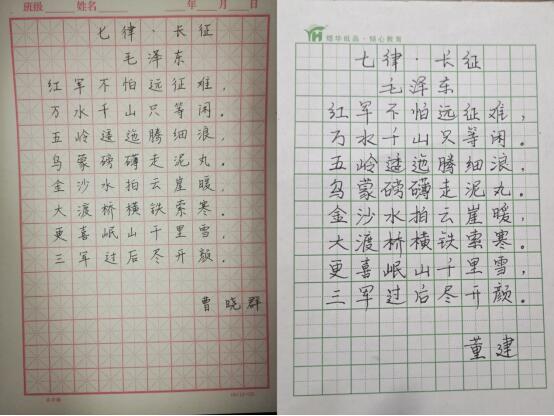 班级 姓名 年 月 日
七律·长征
毛泽东
红军不怕远征难，
万水千山只等闲。
五岭逶迤腾细浪，
乌蒙磅礴走泥丸。
金沙水拍云崖暖，
大渡桥横铁索寒。
更喜岷山千里雪，
三军过后尽开颜。
曹晓群
YH 煜华纸品·倾心教育
七律·长征
毛泽东
红军不怕远征难，
万水千山只等闲。
五岭逶迤腾细浪，
乌蒙磅礴走泥丸。
金沙水拍云崖暖，
大渡桥横铁索寒。
更喜岷山千里雪，
三军过后尽开颜。
董建